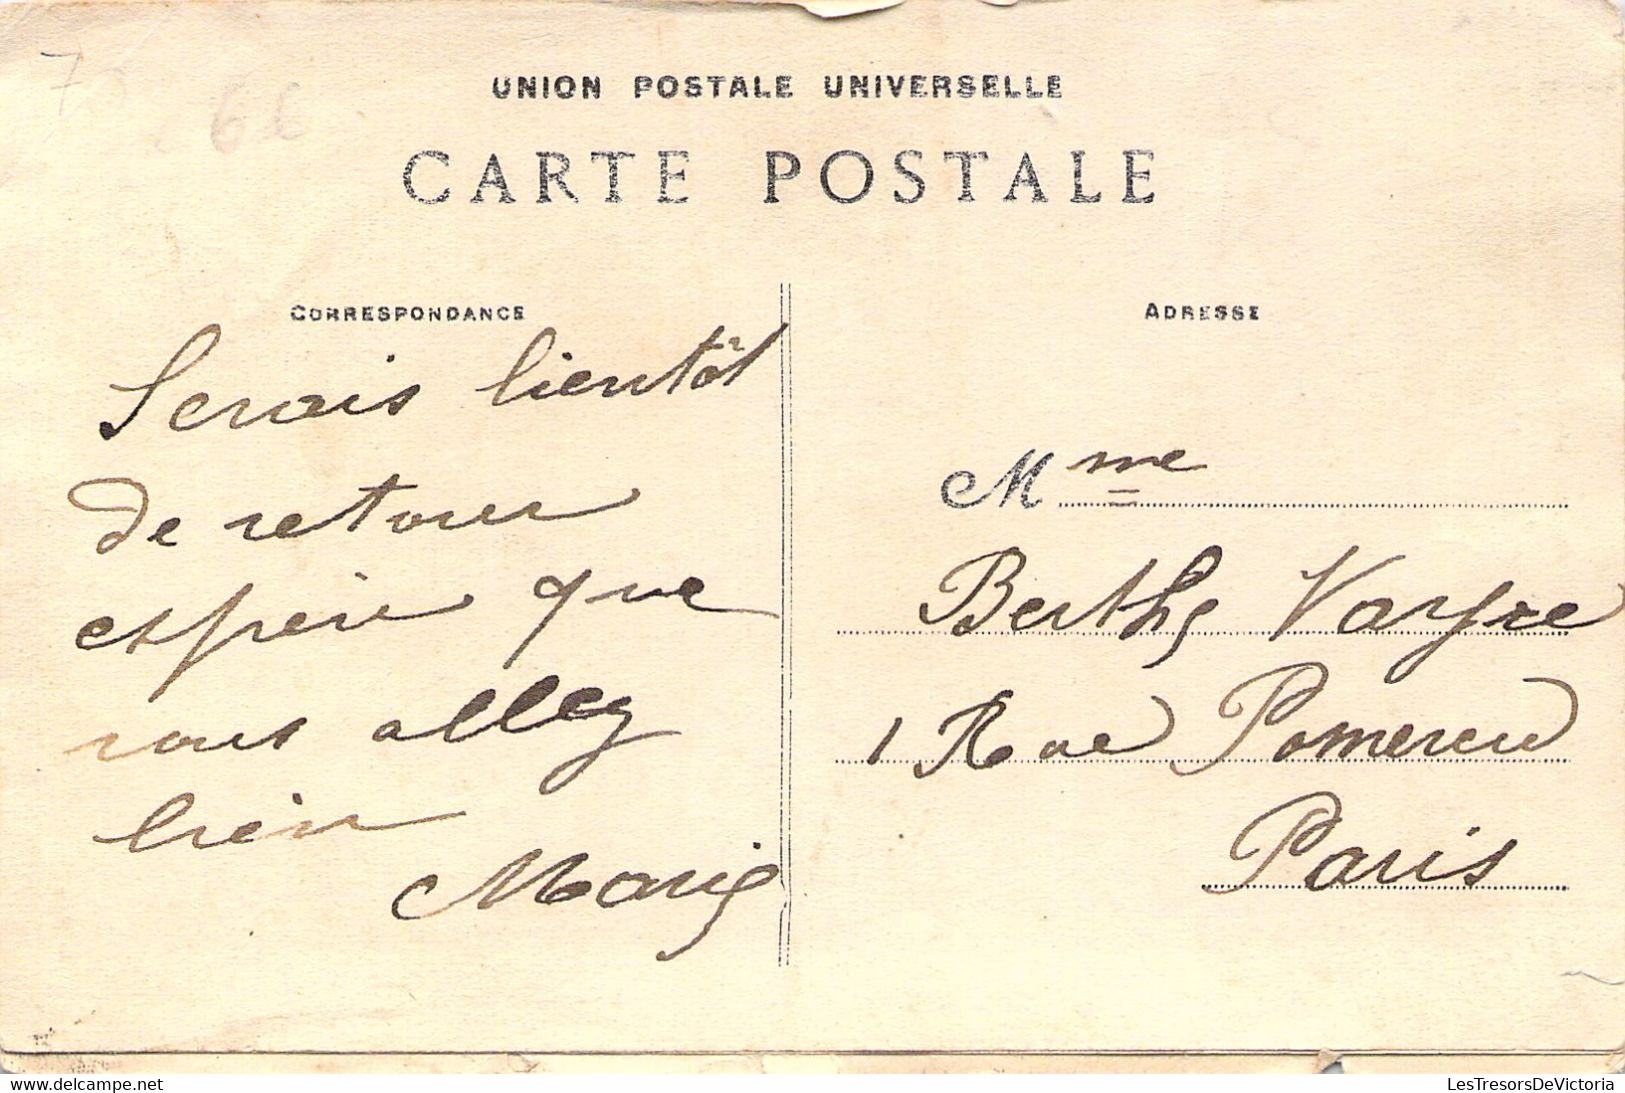 7
66
UNION POSTALE UNIVERSELLE
CARTE POSTALE
CORRESPONDANCE
Serais bientôt
de retour
espère que
vous allez
bien
Marie
ADRESSE
Mme
Berthe
1 Rue Pomereu
Paris
www.delcampe.net
LesTresorsDeVictoria